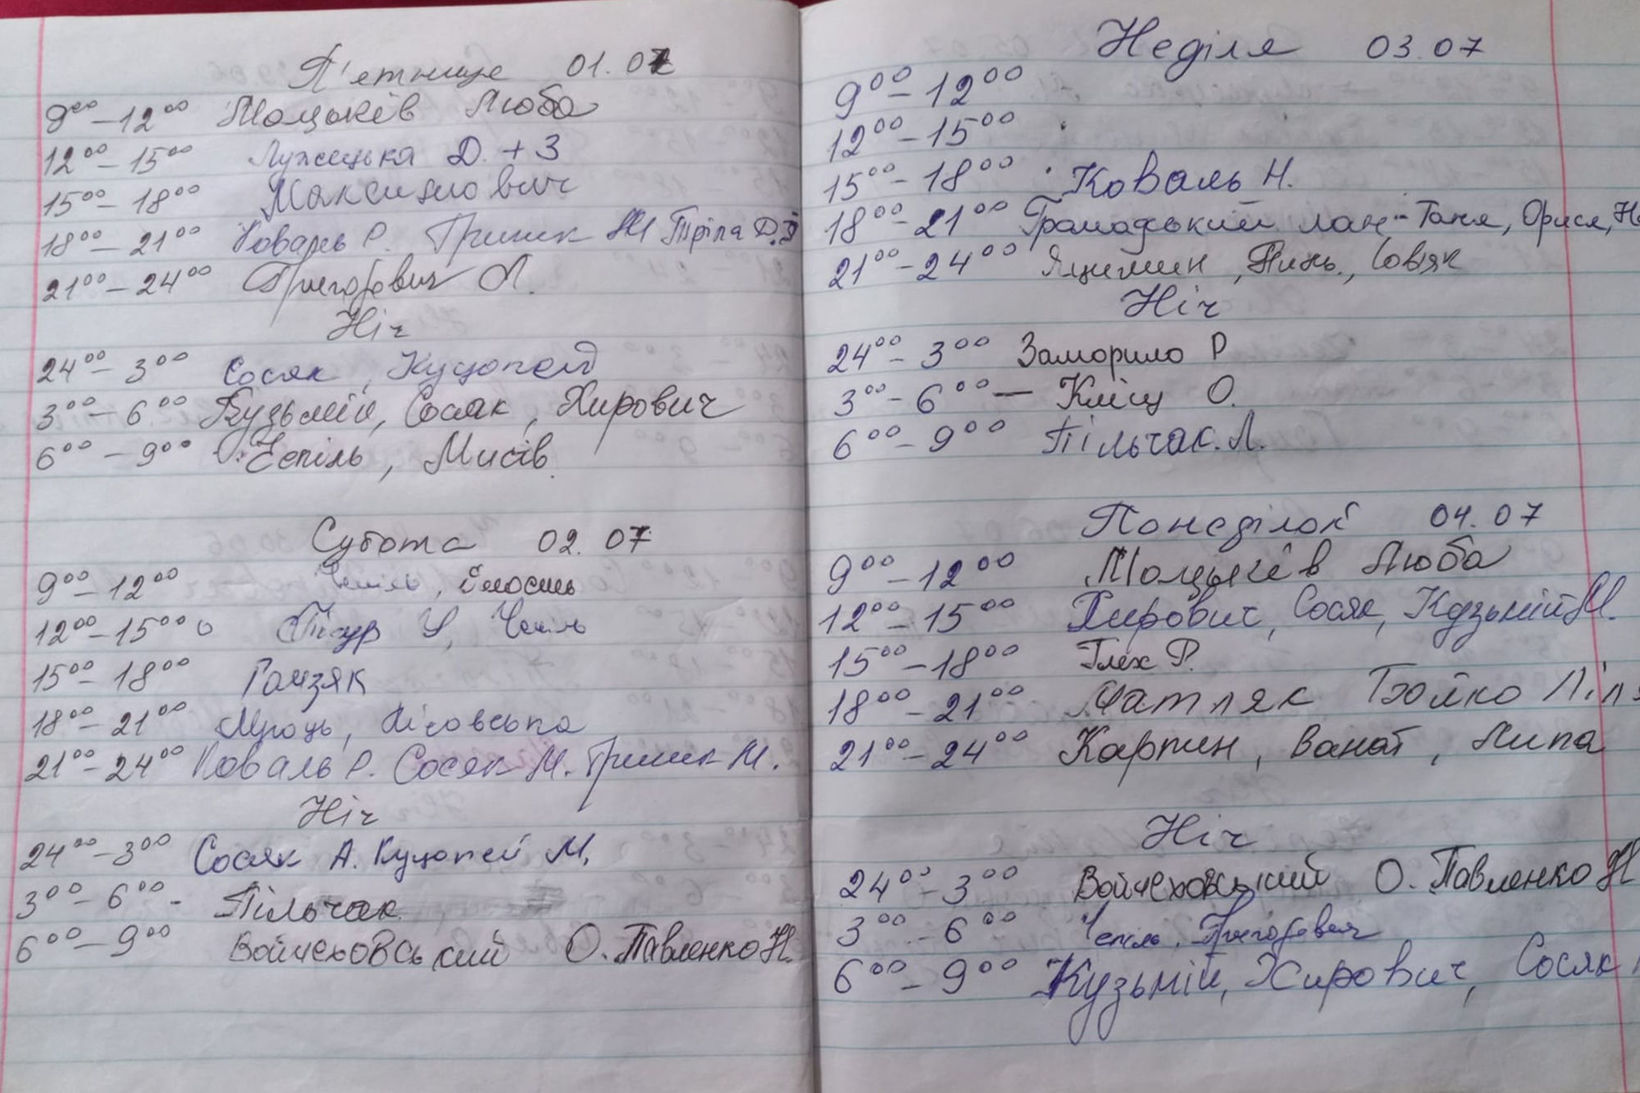 П'ятниця 01.07
9⁰⁰-12⁰⁰ Мацьків Люба
12⁰⁰-15⁰⁰ Лужецька Д. + 3
15⁰⁰-18⁰⁰ Максимович
18⁰⁰-21⁰⁰ Коваль Р. Гриник М Тріпа Д.
21⁰⁰-24⁰⁰ Григорович Л.
Ніч
24⁰⁰-3⁰⁰ Сосяк, Куцопей
3⁰⁰-6⁰⁰ Кузьмій, Сосяк, Хирович
6⁰⁰-9⁰⁰ Чепіль, Мисів
Субота 02.07
9⁰⁰-12⁰⁰ Чепіль,
12⁰⁰-15⁰⁰ Чепіль
15⁰⁰-18⁰⁰ Гамзяк
18⁰⁰-21⁰⁰ Мроць, Лісовська
21⁰⁰-24⁰⁰ Коваль Р. Сосяк М. Гриник М.
Ніч
24⁰⁰-3⁰⁰ Сосяк А. Куцопей М.
3⁰⁰-6⁰⁰ - Пільчак
6⁰⁰-9⁰⁰ Войчеховський О. Павленко Н.
Неділя 03.07
9⁰⁰-12⁰⁰
12⁰⁰-15⁰⁰
15⁰⁰-18⁰⁰ Коваль Н.
18⁰⁰-21⁰⁰ Громадський лан - Таня, Орися,
21⁰⁰-24⁰⁰ Яцишин, Линь,
Ніч
24⁰⁰-3⁰⁰ Заморило Р
3⁰⁰-6⁰⁰ — Кліщ О.
6⁰⁰-9⁰⁰ Пільчак. Л.
Понеділок 04.07
9⁰⁰-12⁰⁰ Мацьків Люба
12⁰⁰-15⁰⁰ Хирович, Сосяк, Кузьмій М.
15⁰⁰-18⁰⁰ Глех Р.
18⁰⁰-21⁰⁰ Матляк Бойко
21⁰⁰-24⁰⁰ Карпин, Ванат, Липа
Ніч
24⁰⁰-3⁰⁰ Войчеховський О. Павленко Н
3⁰⁰-6⁰⁰ Чепіль, Григорович
6⁰⁰-9⁰⁰ Кузьмій, Хирович, Сосяк